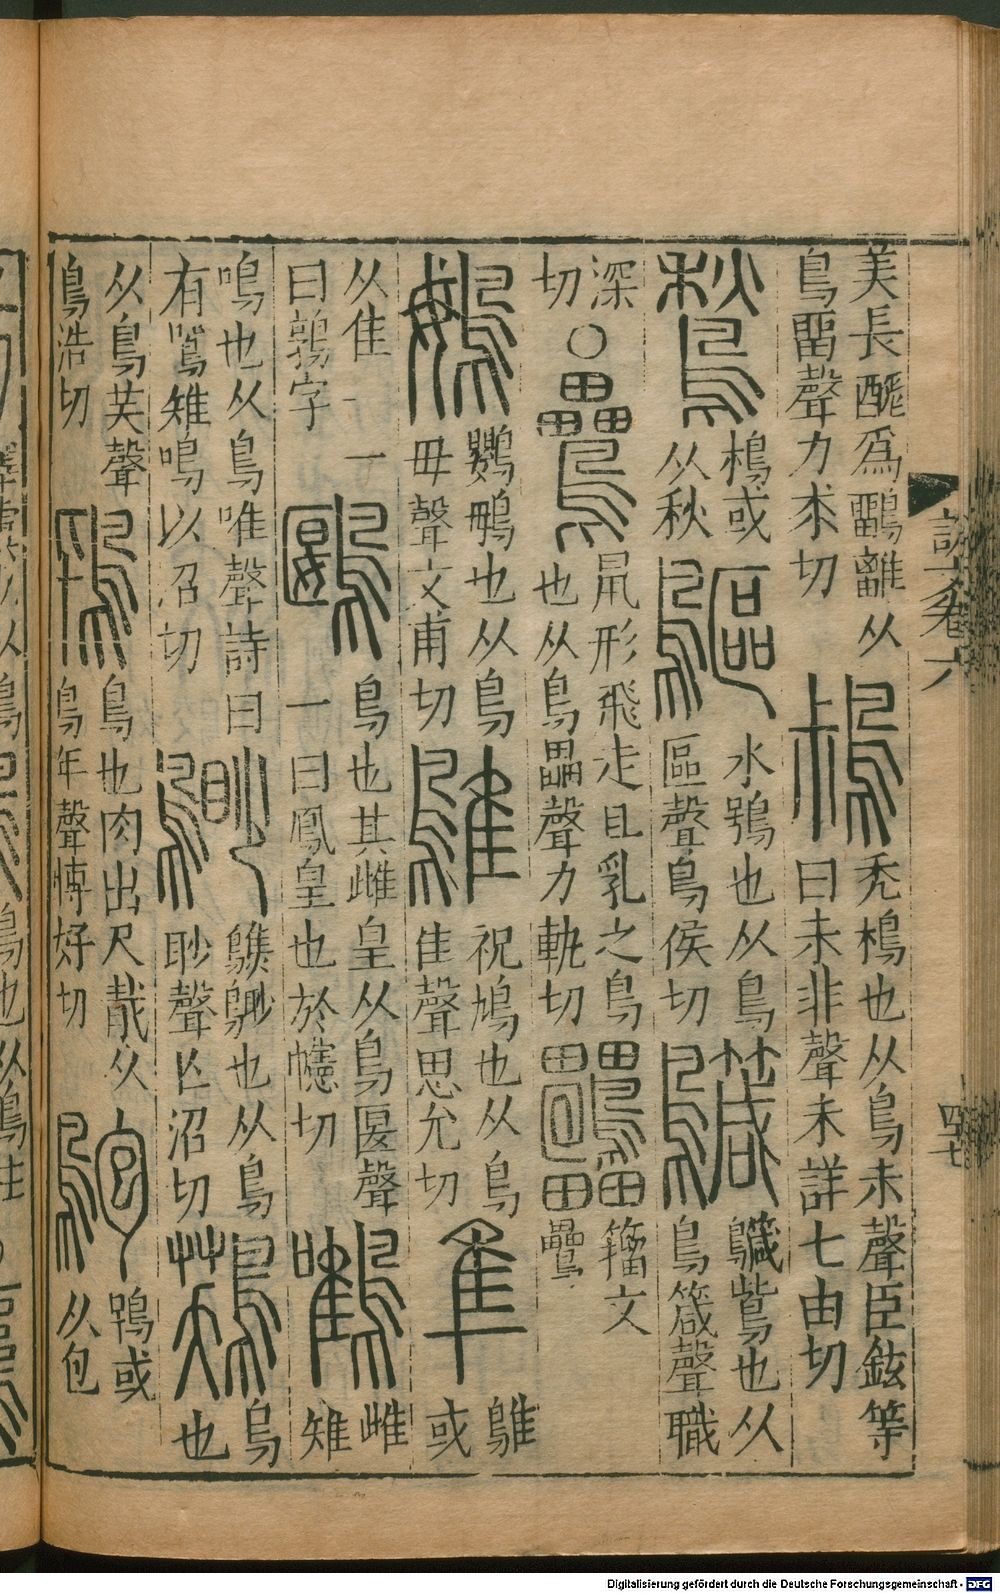 美長醜爲鶹離从
鳥畱聲力求切
秃也从鳥未聲臣鉉等
曰未非聲未詳七由切
鶖
或
从秋
鷗
水鴞也从鳥
區聲烏侯切
鱵
鱵鴜也从
鳥箴聲職
深
切
○
鸓
鼠形飛走且乳之鳥
也从鳥畾聲力軌切
籒文
鸓
䳇
鸚䳇也从鳥
母聲文甫切
鵻
祝鳩也从鳥
隹聲思允切
隼
鵻
或
从隹一一
曰鶉字
鶠
鳥也其雌皇从鳥匽聲
一曰鳳皇也於幰切
鷕
雌
雉
鳴也从鳥唯聲詩曰
有鷕雉鳴以沼切
鷦也从鳥
眇聲亡沼切
烏
也
从鳥芺聲
烏浩切
鴇
鳥也肉出尺胾从
鳥年聲博好切
鴇或
从包
說文卷六
四七
Digitalisierung gefördert durch die Deutsche Forschungsgemeinschaft - DFG